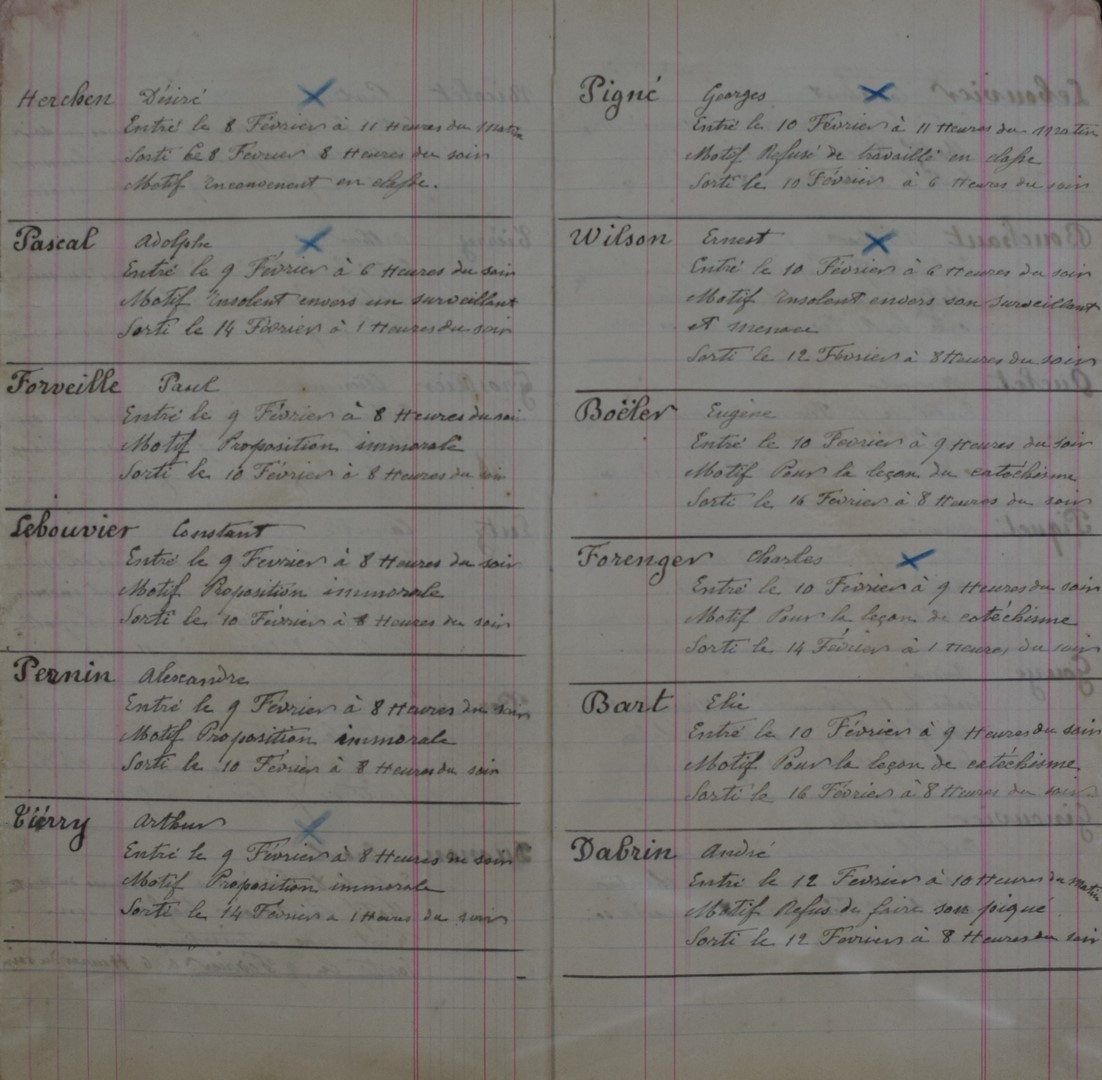 Herchen Désiré
Entré le 8 Février à 11 Heures du matin
Sorti le 8 Fevrier 8 Heures du soir
Motif inconvenent en classe.
Pascal Adolphe
Entré le 9 Février à 6 Heures du soir
Motif Insolent envers un surveillant
Sorti le 14 Février à 1 Heures du soir
Forveille Paul
Entré le 9 Février à 8 Heures du soir
Motif Proposition immorale
Sorti le 10 Février à 8 Heures du soir
Lebouvier Constant
Entré le 9 Fevrier à 8 Heures du soir
Motif Proposition immorale
Sorti le 10 Février à 8 Heures du soir
Pernin Alexandre
Entré le 9 Février à 8 Heures du soir
Motif Proposition immorale
Sorti le 10 Février à 8 Heures du soir
Viérry Arthur
Entré le 9 Février à 8 Heures du soir
Motif Proposition immorale
Sorti le 14 Février a 1 Heures du soir
Pigné Georges
Entré le 10 Février à 11 Heures du matin
Motif Refusé de travaillé en classe
Sorti le 10 Février à 6 Heures du soir
Wilson Ernest
Entré le 10 Février à 6 Heures du soir
Motif Insolent envers son surveillant
et menace
Sorti le 12 Février à 8 Heures du soir
Boëler Eugène
Entré le 10 Fevrier à 9 Heures du soir
Motif Pour la leçon du catéchisme
Sorti le 16 Février à 8 Heures du soir
Forenger Charles
Entré le 10 Février à 9 Heures du soir
Motif Pour la leçon de catéchisme
Sorti le 14 Février à 1 Heures du soir
Bart Elie
Entré le 10 Février à 9 Heures du soir
Motif Pour la leçon de catéchisme
Sorti le 16 Février à 8 Heures du soir
Dabrin André
Entré le 12 Fevrier à 10 Heures du matin
Motif Refus de faire son piqué
Sorti le 12 Fevrier à 8 Heures du soir